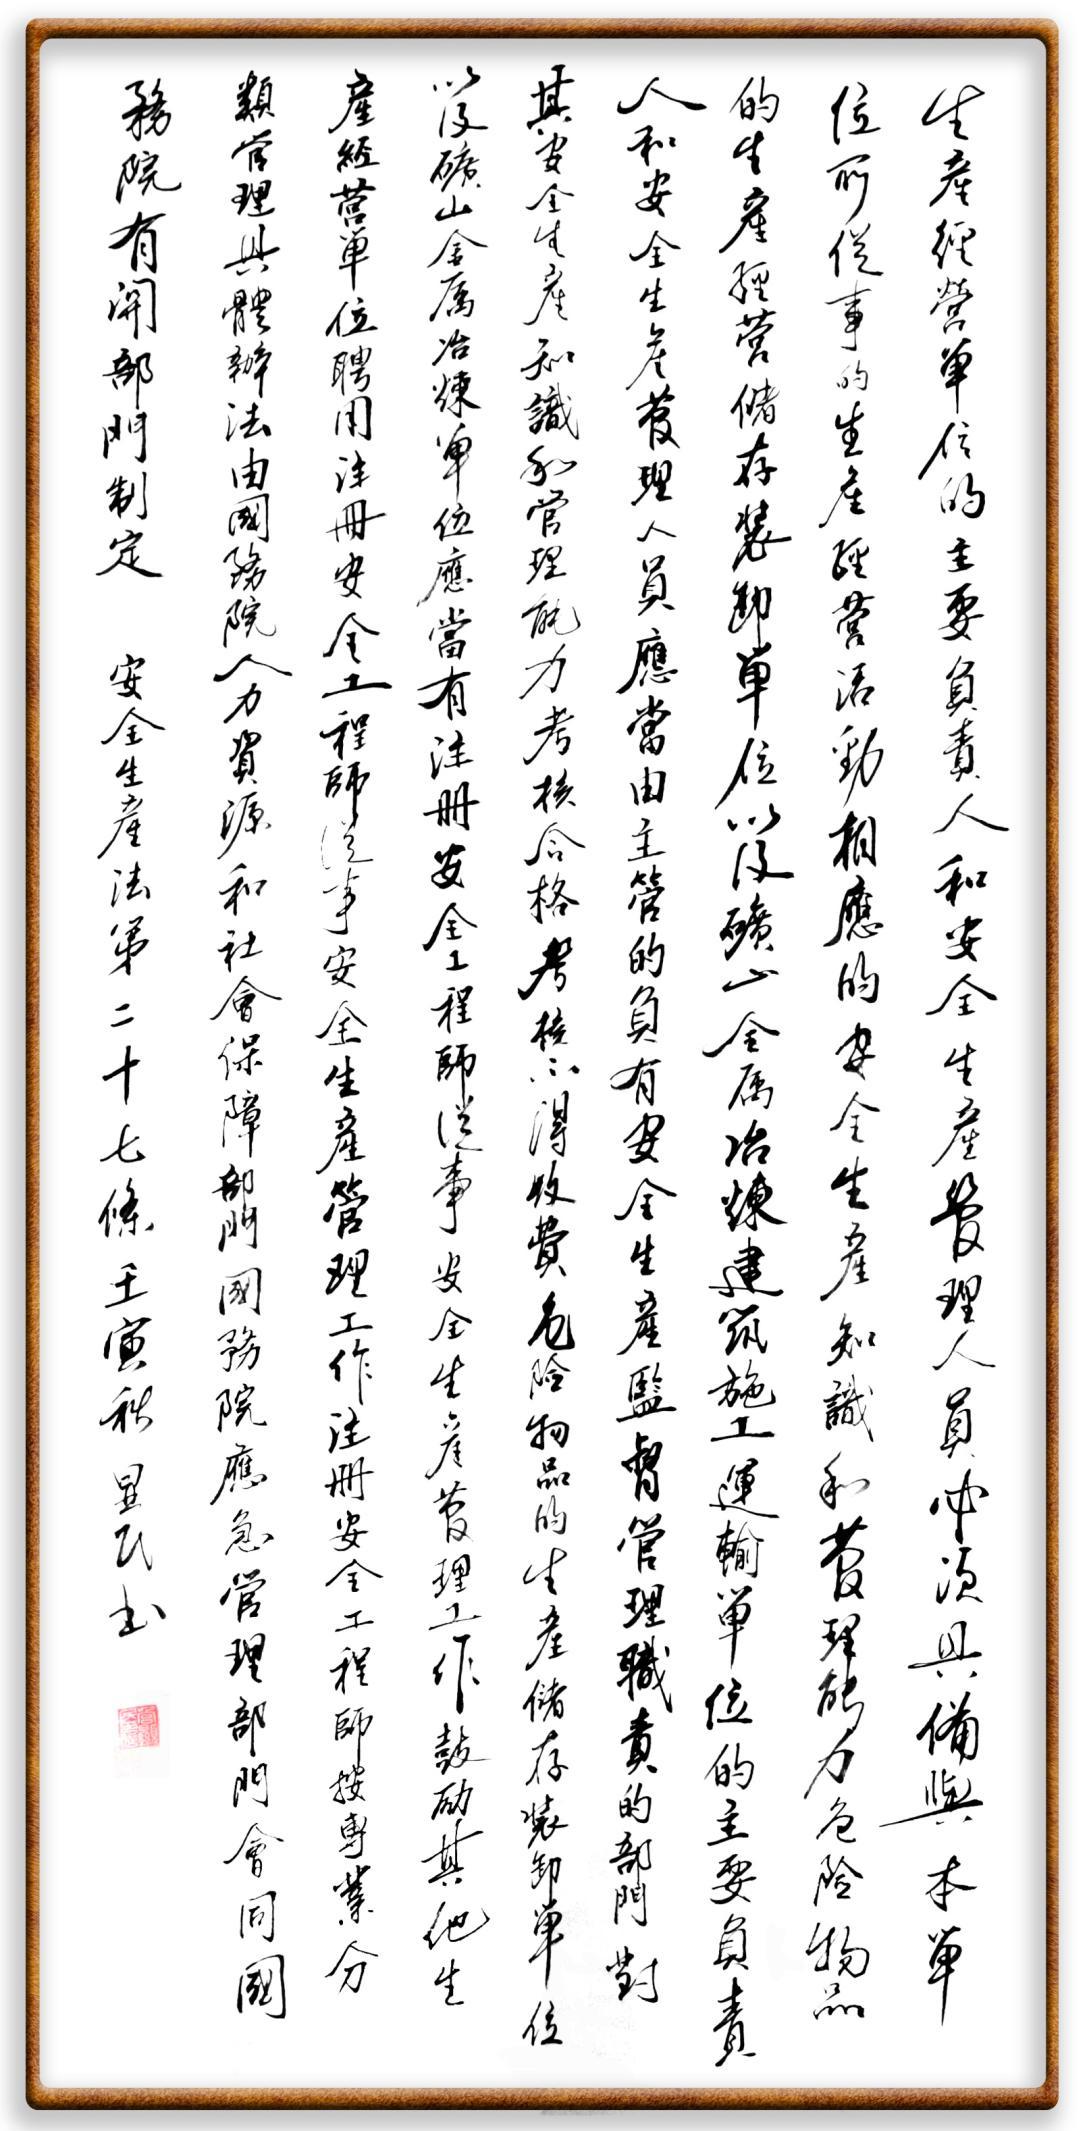 生產經營單位的主要負責人和安全生產管理人員必須具備與本單
位所從事的生產經營活動相應的安全生產知識和管理能力危險物品
的生產經營儲存裝卸單位以及礦山金属冶煉建筑施工運輸單位的主要負責
人和安全生產管理人員應當由主管的負有安全生產監督管理職責的部門對
其安全生產知識和管理能力考核合格考核不得收費危险物品的生產儲存裝卸單位
以及礦山金属冶煉單位應當有注冊安全工程師從事安全生產管理工作鼓励其他生
產經营單位聘用注冊安全工程師從事安全生產管理工作注冊安全工程師按專業分
類管理具體辦法由國務院人力資源和社會保障部門國務院應急管理部門會同國
務院有關部門制定 安全生產法第二十七條壬寅秋 昱民書